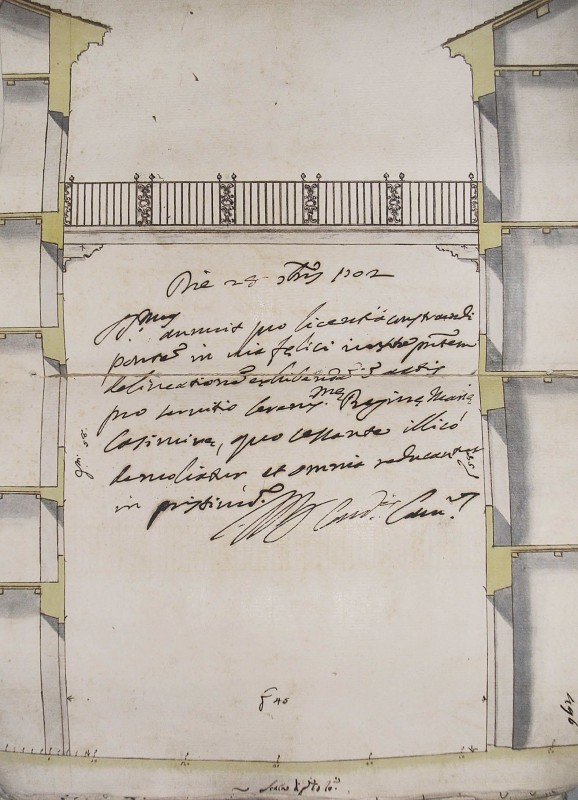 Die 28 8bris 1702
annuit pro licentia construendi
pontem in via felici iuxta pntem
delineationem exhibendam in actis
pro servitio Serenme Reginæ Mariæ
Casimiræ, quo cessante illico
demoliatur et omnia reducantur
in pristinum.
Card. Cam.
40